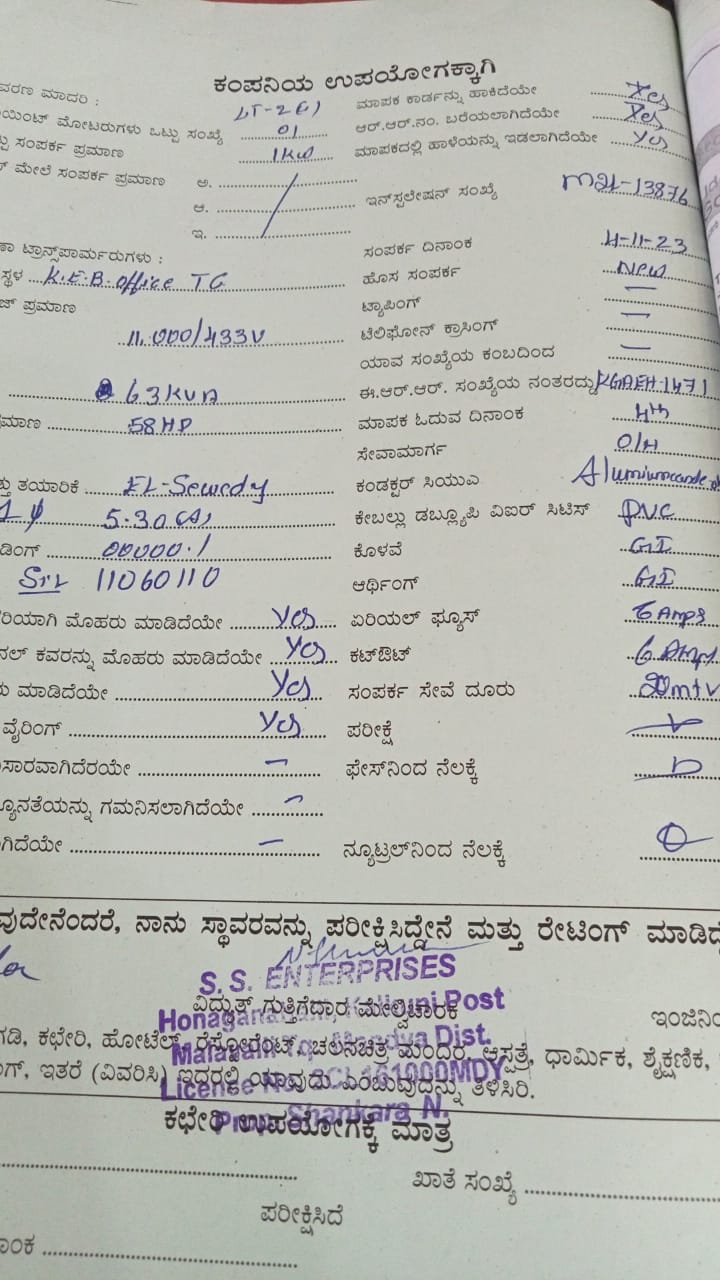 ಕಂಪನಿಯ ಉಪಯೋಗಕ್ಕಾಗಿ
ವರಣ ಮಾದರಿ : LT-2(a) ಮಾಪಕ ಕಾರ್ಡನ್ನು ಹಾಕಿದೆಯೇ Yes
ಯಿಂಟ್ ಮೋಟರುಗಳು ಒಟ್ಟು ಸಂಖ್ಯೆ 01 ಆರ್.ಆರ್.ನಂ. ಬರೆಯಲಾಗಿದೆಯೇ Yes
ಟ್ಟು ಸಂಪರ್ಕ ಪ್ರಮಾಣ 1KW ಮಾಪಕದಲ್ಲಿ ಹಾಳೆಯನ್ನು ಇಡಲಾಗಿದೆಯೇ Yes
ಮೇಲೆ ಸಂಪರ್ಕ ಪ್ರಮಾಣ ಅ.
ಆ. ಇನ್‌ಸ್ಪಲೇಷನ್ ಸಂಖ್ಯೆ M21-13876
ಇ.
ಣಾ ಟ್ರಾನ್ಸ್‌ಪಾರ್ಮರುಗಳು : ಸಂಪರ್ಕ ದಿನಾಂಕ 4-11-23
ಸ್ಥಳ K.E.B. office TC ಹೊಸ ಸಂಪರ್ಕ New
ಜ್ ಪ್ರಮಾಣ ಟ್ಯಾಪಿಂಗ್ —
11.000/433V ಟೆಲಿಫೋನ್ ಕ್ರಾಸಿಂಗ್ —
ಯಾವ ಸಂಖ್ಯೆಯ ಕಂಬದಿಂದ —
63KVA ಈ.ಆರ್.ಆರ್. ಸಂಖ್ಯೆಯ ನಂತರದ್ದು KGAEH-1471
ಮಾಣ 58HP ಮಾಪಕ ಓದುವ ದಿನಾಂಕ 4th
ಸೇವಾಮಾರ್ಗ O/H
ತ್ತು ತಯಾರಿಕೆ EL-Sewedy ಕಂಡಕ್ಟರ್ ಸಿಯುಎ
1ф 5-30(A) ಕೇಬಲ್ಲು ಡಬ್ಲ್ಯೂಪಿ ವಿಐರ್ ಸಿಟಿಸ್ PVC
ಡಿಂಗ್ 00000.1 ಕೊಳವೆ GI
Srl 11060110 ಆರ್ಥಿಂಗ್ GI
ರಿಯಾಗಿ ಮೊಹರು ಮಾಡಿದೆಯೇ Yes ಏರಿಯಲ್ ಫ್ಯೂಸ್ 6 Amps
ನಲ್ ಕವರನ್ನು ಮೊಹರು ಮಾಡಿದೆಯೇ Yes ಕಟ್‌ಔಟ್ 6 Amps
ರು ಮಾಡಿದೆಯೇ Yes ಸಂಪರ್ಕ ಸೇವೆ ದೂರು
ವೈರಿಂಗ್ Yes ಪರೀಕ್ಷೆ
ಸಾರವಾಗಿದೆರಯೇ — ಫೇಸ್‌ನಿಂದ ನೆಲಕ್ಕೆ
ನ್ಯೂನತೆಯನ್ನು ಗಮನಿಸಲಾಗಿದೆಯೇ —
ಗಿದೆಯೇ — ನ್ಯೂಟ್ರಲ್‌ನಿಂದ ನೆಲಕ್ಕೆ
ವುದೇನೆಂದರೆ, ನಾನು ಸ್ಥಾವರವನ್ನು ಪರೀಕ್ಷಿಸಿದ್ದೇನೆ ಮತ್ತು ರೇಟಿಂಗ್ ಮಾಡಿದ್ದೇ
S. S. ENTERPRISES
ವಿದ್ಯುತ್ ಗುತ್ತಿಗೆದಾರ ಮೇಲ್ವಿಚಾರಕ ಇಂಜಿನಿ
Post
ಗಡಿ, ಕಛೇರಿ, ಹೋಟೆಲ್, ರೆಸ್ಟೋರೆಂಟ್, ಚಲನಚಿತ್ರ ಮಂದಿರ, ಆಸ್ಪತ್ರೆ, ಧಾರ್ಮಿಕ, ಶೈಕ್ಷಣಿಕ,
Dist.
ಗ್, ಇತರೆ (ವಿವರಿಸಿ) ಇದರಲ್ಲಿ ಯಾವುದು ಎಂಬುವುದನ್ನು ತಿಳಿಸಿರಿ.
Shankara N.
ಕಛೇರಿ ಉಪಯೋಗಕ್ಕೆ ಮಾತ್ರ
ಖಾತೆ ಸಂಖ್ಯೆ
ಪರೀಕ್ಷಿಸಿದೆ
ಾಂಕ